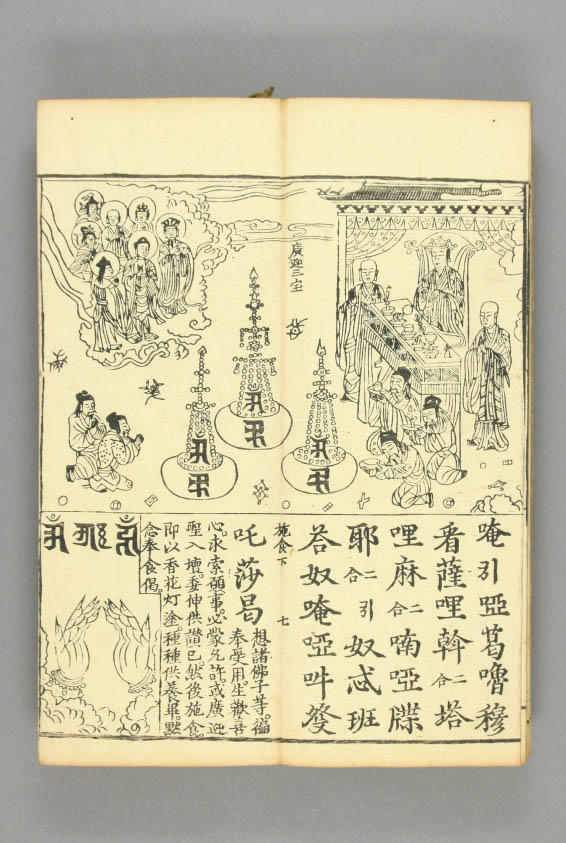 廣迎三宝
唵引啞葛嚕穆
看薩哩斡二合塔
哩麻二合喃啞牒
耶二合引奴忒班
荅奴唵啞吽發
施食下 七
吒莎曷
想諸佛子等福
奉受用生歡喜
心求索願事必蒙允許或廣迎
聖入壇委伸供讚已然後施食
即以香花灯塗種種供養畢黙
念奉食偈